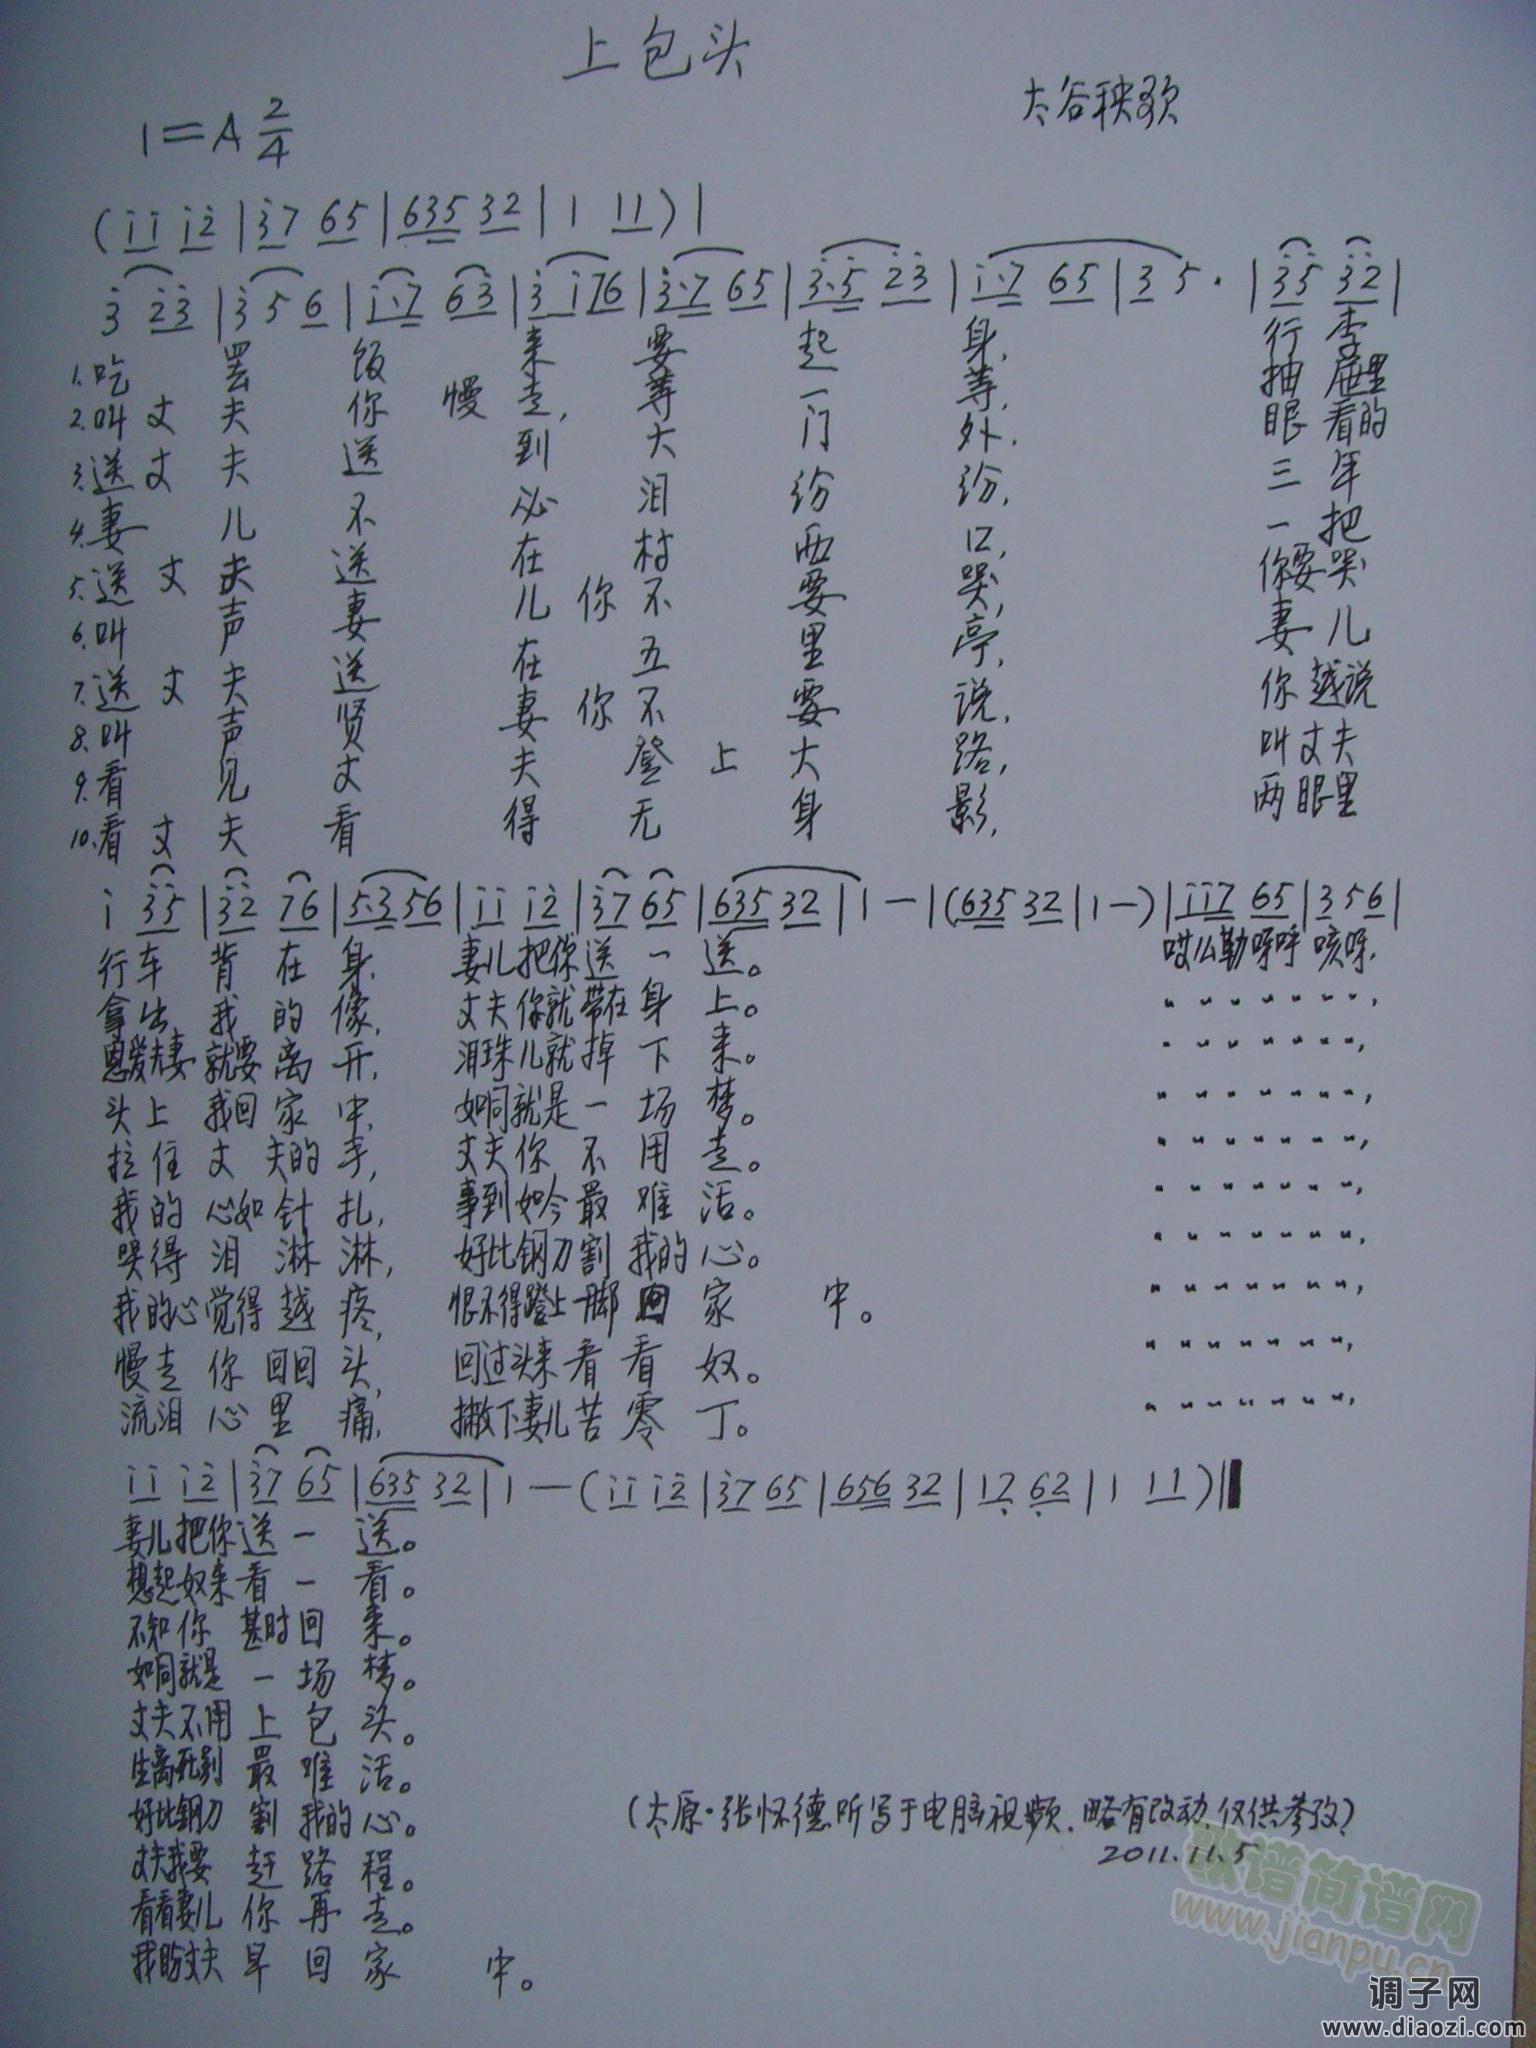 上包头
太谷秧歌
1=A 2/4
(i i i 2̇ | 3̇ 7 6 5 | 6 3 5 3 2 | 1 1 1 ) |
3̇ 2̇ 3̇ | 3̇ 5 6 | i· 7 6 3̇ | 3̇ i 7 6 | 3̇· 7 6 5 | 3̇· 5̇ 2̇ 3̇ | i· 7 6 5 | 3 5 · | 3̇ 5̇ 3̇ 2̇ |
1.吃 罢 饭 来 要 起 身, 行 李
2.叫 丈 夫 你 慢 走, 等 一 等, 抽 屉里
3.送 丈 夫 送 到 大 门 外, 眼 看的
4.妻 儿 不 必 泪 纷 纷, 三 年
5.送 丈 夫 送 在 村 西 口, 一 把
6.叫 声 妻 儿 你 不 要 哭, 你要 哭
7.送 丈 夫 送 在 五 里 亭, 妻 儿
8.叫 声 贤 妻 你 不 要 说, 你 越说
9.看 见 丈 夫 登 上 大 路, 叫 丈夫
10.看 丈 夫 看 得 无 身 影, 两 眼里
i 3̇ 5̇ | 3̇ 2̇ 7 6 | 5· 3 5 6 | i i i 2̇ | 3̇ 7 6 5 | 6 3 5 3 2 | 1 — | (6 3 5 3 2 | 1 —) | i i 7 6 5 | 3 5 6 |
行 车 背 在 身, 妻儿把你 送 一 送。 哎么勒呀呼 咳呀,
拿 出 我 的 像, 丈夫 你就 带在 身 上。 〃 〃 〃 〃 〃 〃 〃,
恩爱夫妻 就要 离 开, 泪珠儿就 掉 下 来。 〃 〃 〃 〃 〃 〃 〃,
头 上 我回 家 中, 如同就是 一 场 梦。 〃 〃 〃 〃 〃 〃 〃,
拉 住 丈 夫的 手, 丈夫 你 不 用 走。 〃 〃 〃 〃 〃 〃 〃,
我 的 心如 针 扎, 事到如今 最 难 活。 〃 〃 〃 〃 〃 〃 〃,
哭得 泪 淋 淋, 好比钢刀 割 我的 心。 〃 〃 〃 〃 〃 〃 〃,
我的心 觉得 越 疼, 恨不得蹬上 一脚 回 家 中。 〃 〃 〃 〃 〃 〃 〃,
慢走 你 回回 头, 回过头来 看 看 奴。 〃 〃 〃 〃 〃 〃 〃,
流泪 心 里 痛, 撇下妻儿 苦 零 丁。 〃 〃 〃 〃 〃 〃 〃,
i i i 2̇ | 3̇ 7 6 5 | 6 3 5 3 2 | 1 — (i i i 2̇ | 3̇ 7 6 5 | 6 5 6 3 2 | 1 7̣ 6̣ 2 | 1 1 1 ) ‖
妻儿把你送 一 送。
想起奴来看 一 看。
不知你 甚时 回 来。
如同就是 一 场 梦。
丈夫不用 上 包 头。
生离死别 最 难 活。
好比钢刀 割 我的 心。
丈夫我要 赶 路 程。
看看妻儿 你 再 走。
我盼丈夫 早 回 家 中。
(太原·张怀德听写于电脑视频.略有改动.仅供参考)
2011.11.5
歌谱简谱网
www.jianpu.cn
调子网
www.diaozi.com